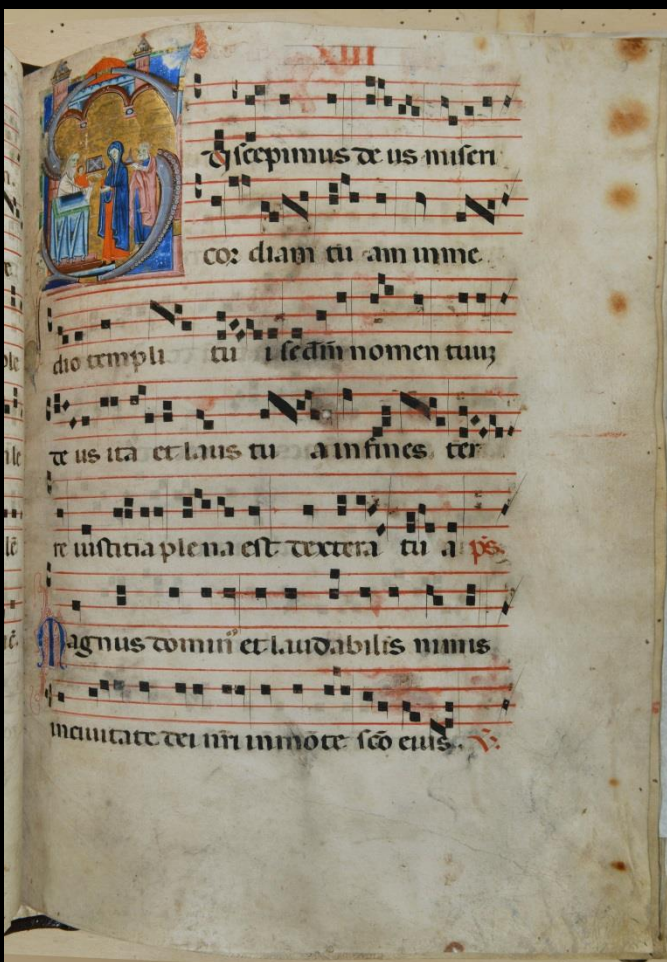 XIII
Suscepimus de us miseri
cor diam tu am in me
dio templi tu i scdm nomen tuuz
de us ita et laus tu a in fines ter
re iusticia ple na est dextera tu a ps.
Magnus domin' et laudabilis nimis
in ciuitate dei nri in mote sco eius. V.